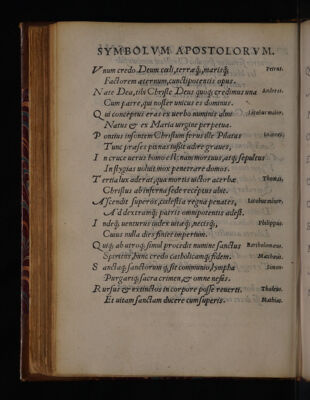 SYMBOLVM APOSTOLORVM.
Vnum credo Deum cœli, terræq́;, marisq́; Petrus.
Factorem æternum, cunctipotentis opus.
Nate Dea, tibi Christe Deus quoq; credimus una Andreas.
Cum patre, qui noster unicus es dominus.
Qui conceptus eras ex uerbo numinis almo Iacobus maior.
Natus & es Maria uirgine perpetua.
Pontius insontem Christum ferus ille Pilatus Ioannes.
Tunc præses pœnas iussit adire graues,
In cruce uerus homo es: nam mortuus, atq; sepultus
In stygias uoluit mox penetrare domos.
Tertia lux aderat, qua mortis uictor acerbæ Thomas.
Christus ab inferna sede receptus abit.
Ascendit superos, cœlestia regna penates, Iacobus minor.
Ad dextramq́; patris omnipotentis adest.
Indeq́; uenturus iudex uitæq́;, necisq́;, Philippus.
Cuius nulla dies finiet imperium.
Quiq́; ab utroq; simul procedit numine sanctus Bartholomæus.
Spiritus, hunc credo catholicamq́; fidem. Matthæus.
Sanctaq́; sanctorum q̃ sit communio, lympha Simon.
Purgariq́; sacra crimen, & omne nefas.
Rursus & extinctos in corpore posse reuerti. Thadæus.
Et uitam sanctam ducere cum superis. Mathias.